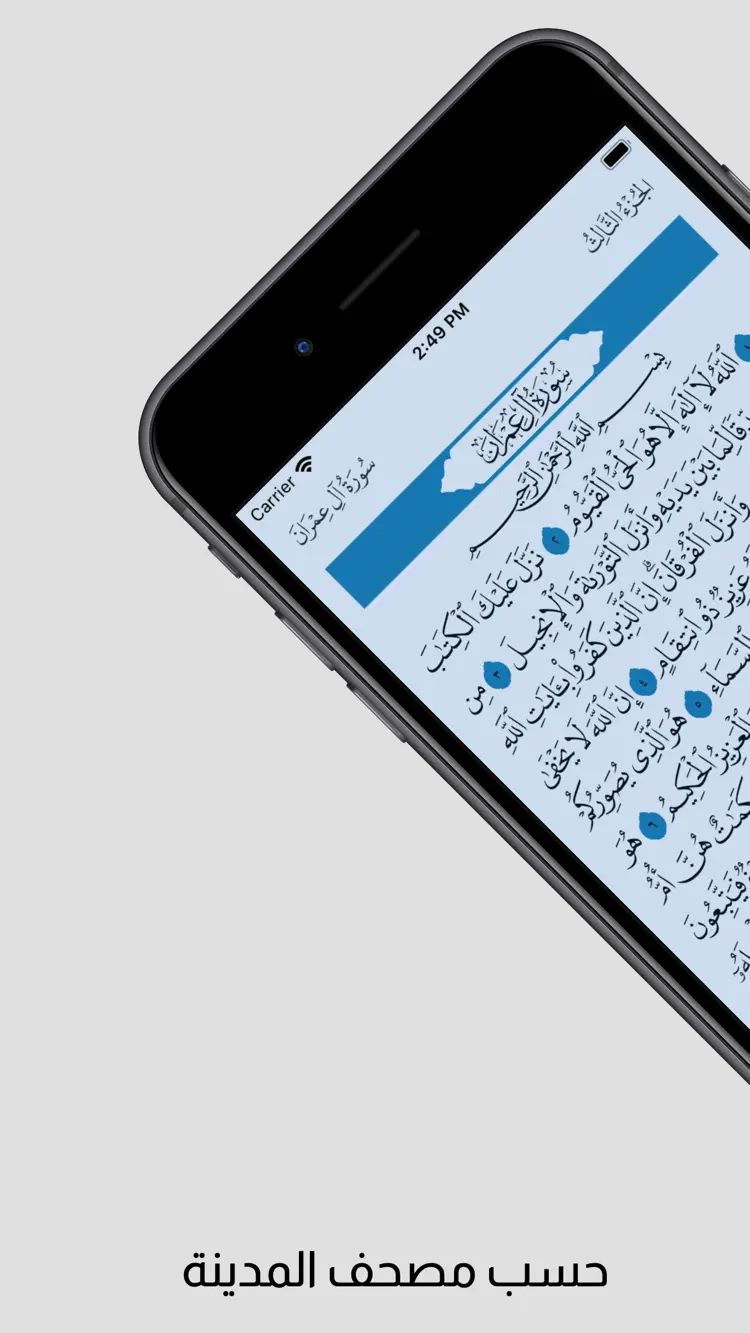 Carrier 2:49 PM
سُورَةُ آلِ عِمْرَانَ الجُزْءُ الثَّالِثُ
سُورَةُ آلِ عِمْرَانَ
بِسْمِ ٱللَّهِ ٱلرَّحْمَٰنِ ٱلرَّحِيمِ
١ ٱللَّهُ لَآ إِلَٰهَ إِلَّا هُوَ ٱلْحَىُّ ٱلْقَيُّومُ ٢ نَزَّلَ عَلَيْكَ ٱلْكِتَٰبَ
لِّمَا بَيْنَ يَدَيْهِ وَأَنزَلَ ٱلتَّوْرَىٰةَ وَٱلْإِنجِيلَ ٣ مِن
وَأَنزَلَ ٱلْفُرْقَانَ ۗ إِنَّ ٱلَّذِينَ كَفَرُوا۟ بِـَٔايَٰتِ ٱللَّهِ
عَزِيزٌ ذُو ٱنتِقَامٍ ٤ إِنَّ ٱللَّهَ لَا يَخْفَىٰ
ٱلسَّمَآءِ ٥ هُوَ ٱلَّذِى يُصَوِّرُكُمْ
ٱلْعَزِيزُ ٱلْحَكِيمُ ٦ هُوَ
هُنَّ أُمُّ
فَيَتَّبِعُونَ
حسب مصحف المدينة